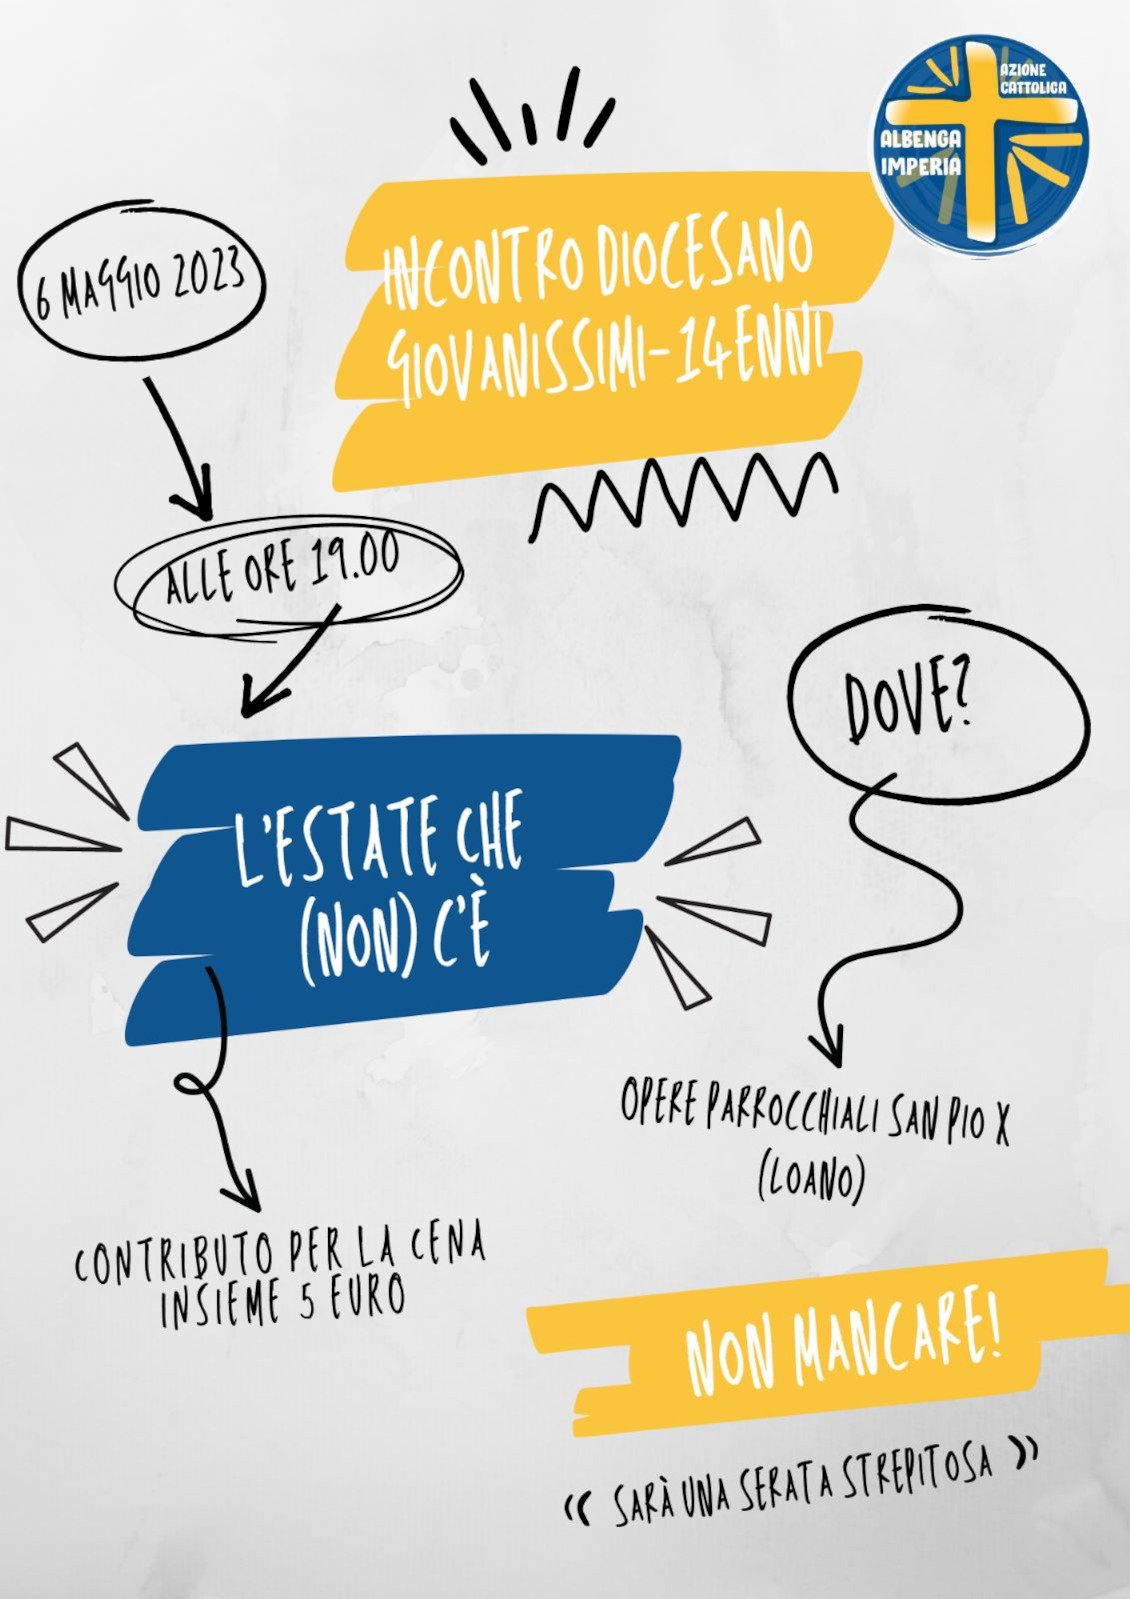 AZIONE
CATTOLICA
ALBENGA
IMPERIA
INCONTRO DIOCESANO
GIOVANISSIMI-14ENNI
6 MAGGIO 2023
ALLE ORE 19.00
L'ESTATE CHE
(NON) C'È
DOVE?
OPERE PARROCCHIALI SAN PIO X
(LOANO)
CONTRIBUTO PER LA CENA
INSIEME 5 EURO
NON MANCARE!
« SARÀ UNA SERATA STREPITOSA »